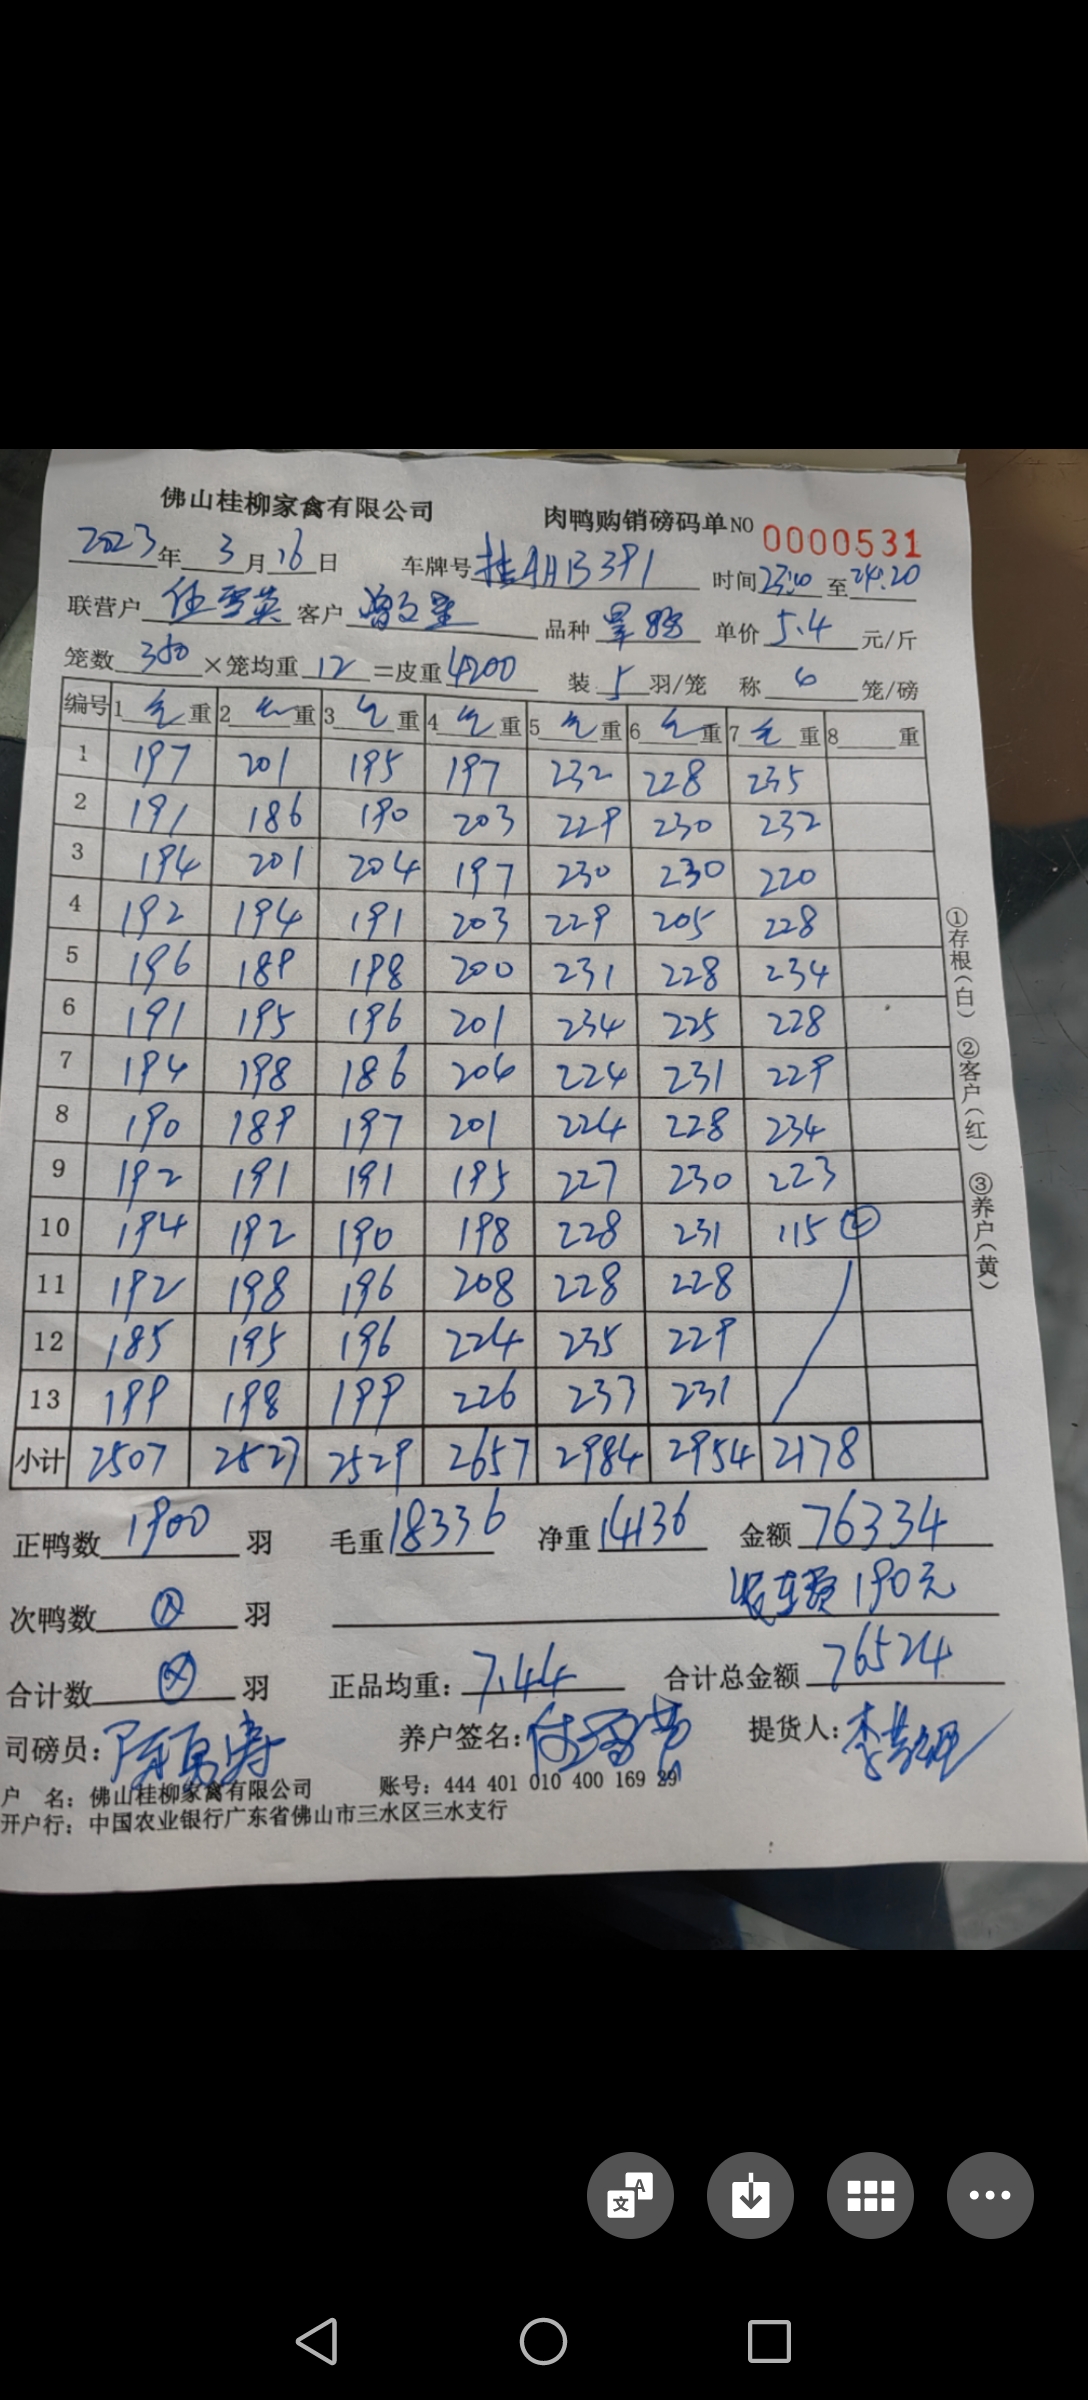 佛山桂柳家禽有限公司 肉鸭购销磅码单NO 0000531
2023年3月16日 车牌号桂AHB391 时间23:10至24:20
联营户 任雪英 客户 曾文星 品种 单价 5.4 元/斤
笼数 350 ×笼均重 12 =皮重 4200 装 5 羽/笼 称 6 笼/磅
编号 1 毛 重 2 毛 重 3 毛 重 4 毛 重 5 毛 重 6 毛 重 7 毛 重 8 重
1 197 201 195 197 232 228 235
2 191 186 190 203 229 230 232
3 194 201 204 197 230 230 220
4 192 194 191 203 229 205 228
5 196 189 198 200 231 228 234
6 191 195 196 201 234 225 228
7 194 198 186 204 224 231 229
8 190 189 197 201 224 228 234
9 192 191 191 195 227 230 223
10 194 192 190 198 228 231 115
11 192 198 196 208 228 228
12 185 195 196 224 235 229
13 199 198 199 226 233 231
小计 2507 2527 2529 2657 2984 2954 2178
正鸭数 1900 羽 毛重 18336 净重 14136 金额 76334
装车费 190元
次鸭数 羽
合计数 羽 正品均重: 7.44 合计总金额 76524
司磅员: 养户签名: 任雪英 提货人:
户 名: 佛山桂柳家禽有限公司 账号: 444 401 010 400 169 29
开户行: 中国农业银行广东省佛山市三水区三水支行
①存根(白) ②客户(红) ③养户(黄)